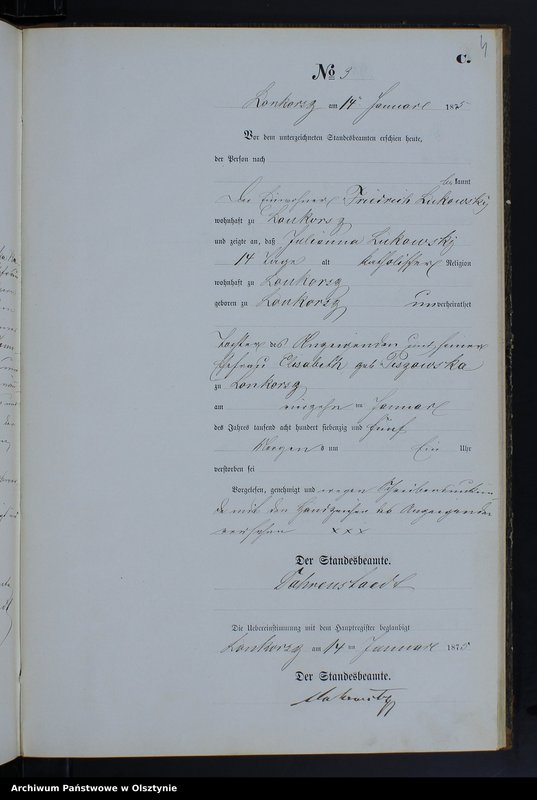 4
C.
No 3
Lonkorsz am 14 Januar 1875
Vor dem unterzeichneten Standesbeamten erschien heute,
der Person nach
bekannt
Der Einwohner Friedrich Lukowsky
wohnhaft zu Lonkorsz
und zeigte an, daß Julianna Lukowsky
14 Tage alt katholischer Religion
wohnhaft zu Lonkorsz
geboren zu Lonkorsz unverheirathet
Tochter des Anzeigenden und seiner
Ehefrau Elisabeth geb
zu Lonkorsz
am Januar
des Jahres tausend acht hundert siebenzig und fünf
Morgens um Ein Uhr
verstorben sei
Vorgelesen, genehmigt und wegen
mit den Handzeichen
versehen x x x
Der Standesbeamte.
Die Uebereinstimmung mit dem Hauptregister beglaubigt
Lonkorsz am 14 ten Januar 1875
Der Standesbeamte.
Archiwum Państwowe w Olsztynie